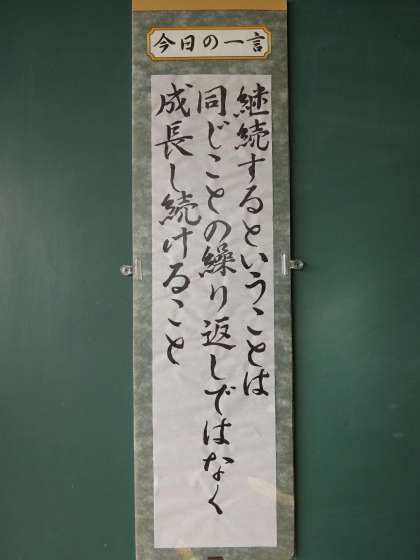 今日の一言
継続するということは
同じことの繰り返しではなく
成長し続けること